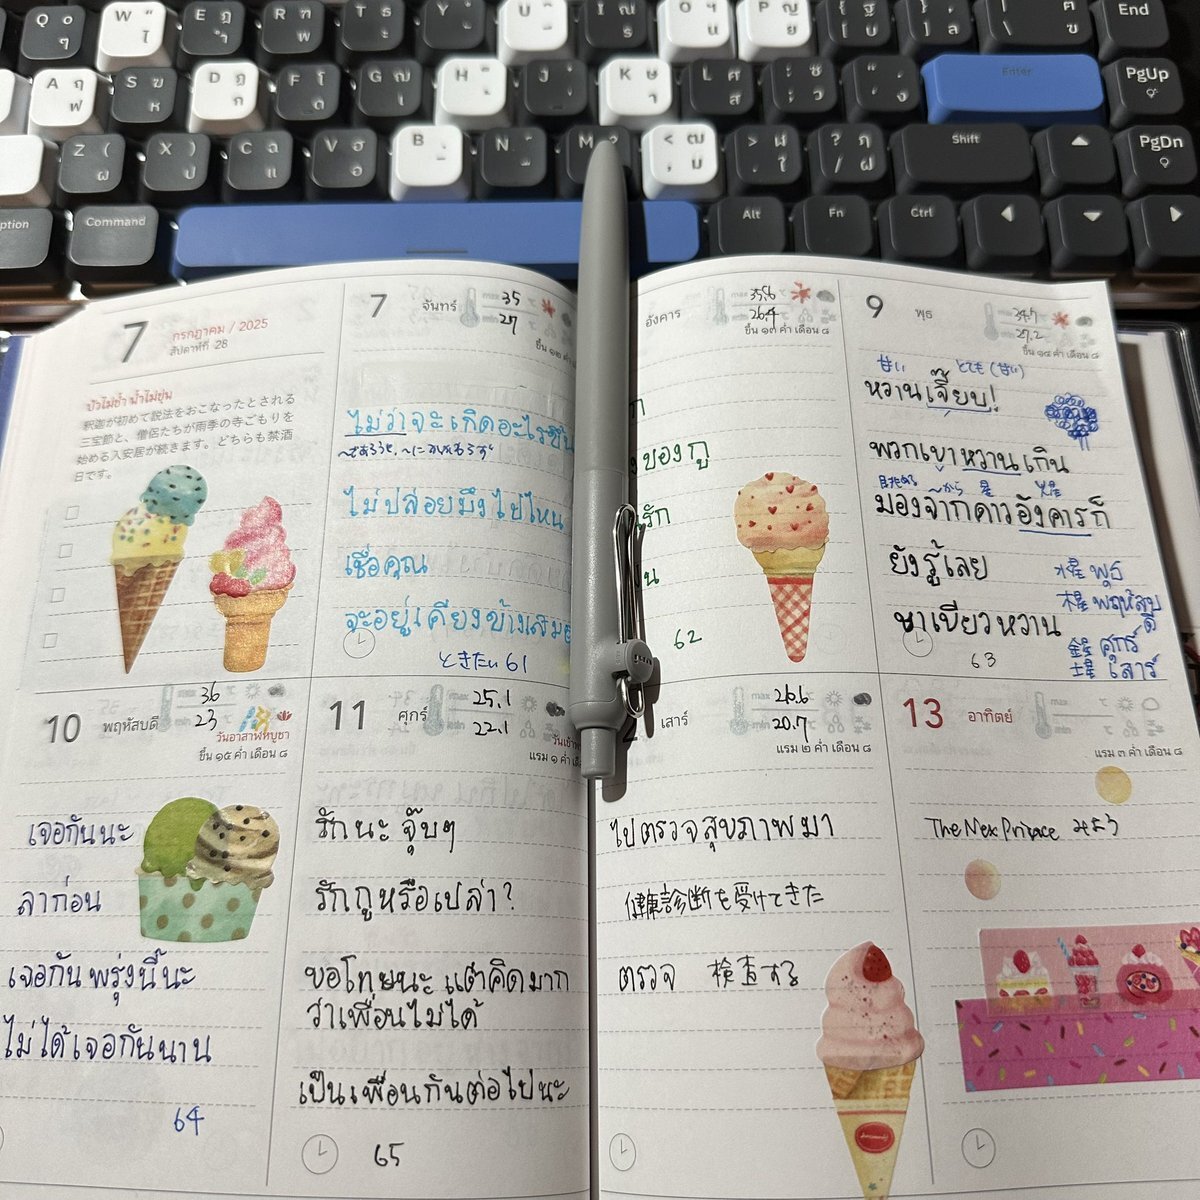 Q ๆ
W
E ฎ ำ
R ฑ พ
T ธ ะ
U
O ฯ น
P ญ ย
End
A ฤ ฟ
S ฆ ห
D ฏ ก
F โ ด
G ฌ เ
H
J
K ษ า
L ศ ส
Enter
PgUp
Z ( ผ
X ) ป
C ฉ แ
V ฮ อ
B
N
M ?
< ฒ ม
> ฬ ใ
? ฦ / ฝ
Shift
PgDn
ption
Command
Alt
Fn
Ctrl
7
กรกฎาคม / 2025
สัปดาห์ที่ 28
บัวไม่ช้ำ น้ำไม่ขุ่น
釈迦が初めて説法をおこなったとされる
三宝節と、僧侶たちが雨季の寺ごもりを
始める入安居が続きます。どちらも禁酒
日です。
7 จันทร์
max 35
27
ไม่ว่าจะเกิดอะไรขึ้น
ไม่ปล่อยมึงไปไหน
เชื่อคุณ
จะอยู่เคียงข้างเสมอ
ときたい 61
อังคาร
max 35.8
26.4
ขึ้น ๑๓ ค่ำ เดือน ๘
ก
ของกู
รัก
น
62
9 พุธ
34.7
27.2
ขึ้น ๑๔ ค่ำ เดือน ๘
甘い とても(甘い)
หวานเจี๊ยบ!
พวกเขาหวานเกิน
眺める ～から 星 火星
มองจากดาวอังคารก็
ยังรู้เลย
ชาเขียวหวาน
水星 พุธ
木星 พฤหัสบดี
金星 ศุกร์
土星 เสาร์
63
10 พฤหัสบดี
36
23
วันอาสาฬหบูชา
ขึ้น ๑๕ ค่ำ เดือน ๘
เจอกันนะ
ลาก่อน
เจอกันพรุ่งนี้นะ
ไม่ได้เจอกันนาน
64
11 ศุกร์
max 25.1
min 22.1
แรม ๑ ค่ำ เดือน ๘
รักนะ จุ๊บๆ
รักกูหรือเปล่า?
ขอโทษนะ แต่คิดมาก
ว่าเพื่อนไม่ได้
เป็นเพื่อนกันต่อไปนะ
65
เสาร์
max 26.6
min 20.7
แรม ๒ ค่ำ เดือน ๘
ไปตรวจสุขภาพมา
健康診断を受けてきた
ตรวจ 検査する
13 อาทิตย์
max
min
แรม ๓ ค่ำ เดือน ๘
The Nex Prince みよう